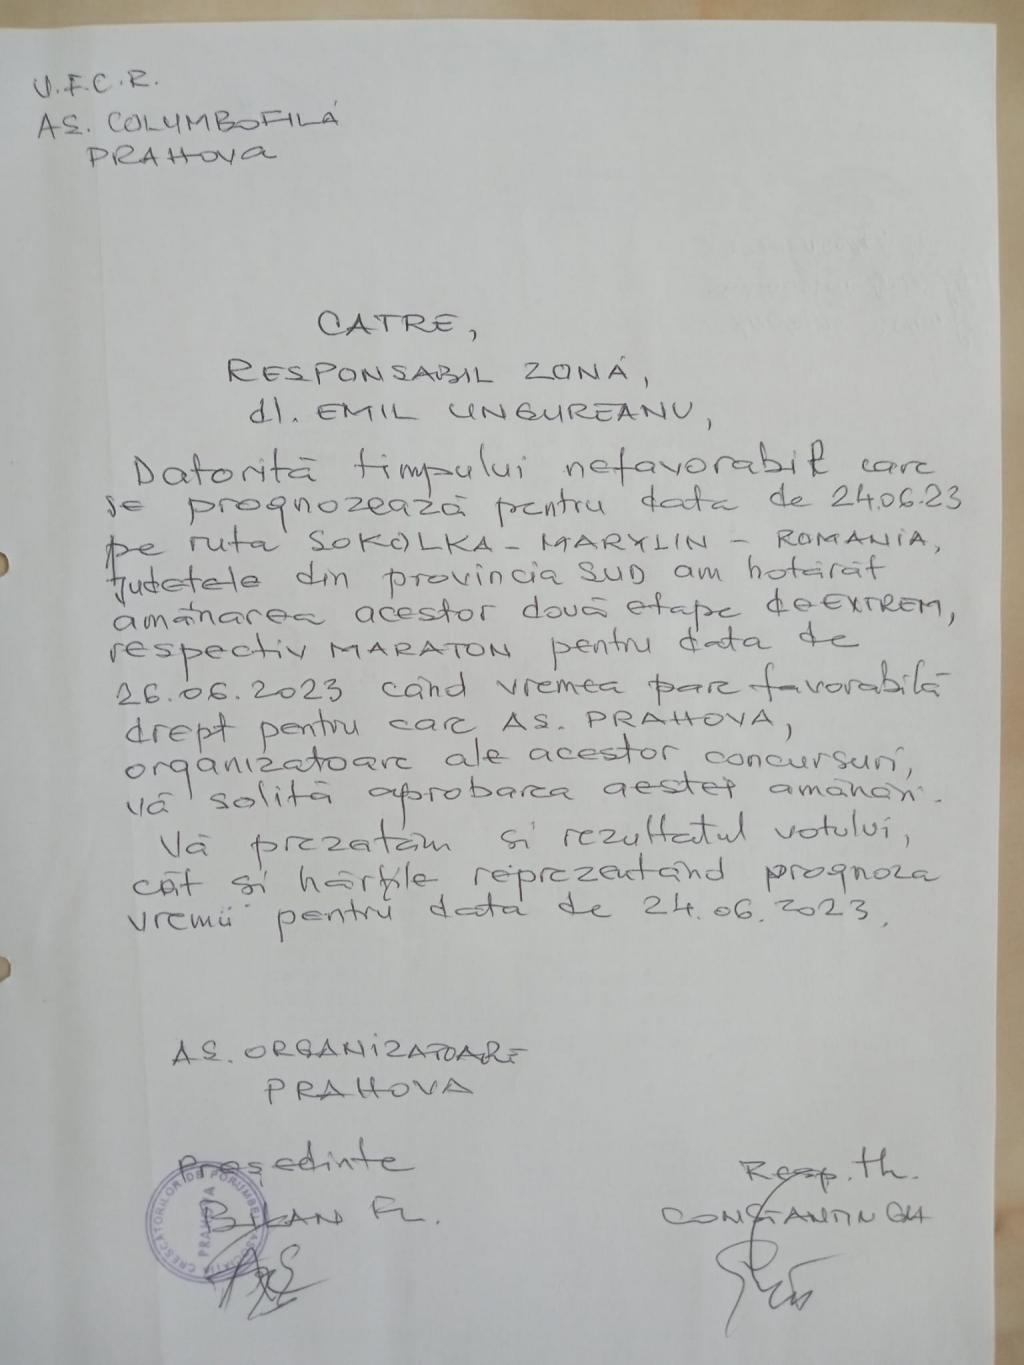 U.F.C.R.
AS. COLUMBOFILĂ
PRAHOVA
CATRE,
RESPONSABIL ZONĂ,
dl. EMIL UNGUREANU,
Datorită timpului nefavorabil care
se prognozează pentru data de 24.06.23
pe ruta SOKOLKA - MARYLIN - ROMANIA,
județele din provincia SUD am hotărât
amânarea acestor două etape de EXTREM,
respectiv MARATON pentru data de
26.06.2023 când vremea pare favorabilă
drept pentru care AS. PRAHOVA,
organizatoare ale acestor concursuri,
vă solită aprobarea aestei amânări.
Vă prezatăm si rezultatul votului,
cât si hărțile reprezentând prognoza
vremii pentru data de 24.06.2023.
AS. ORGANIZATOARE
PRAHOVA
Președinte
FL.
Resp. th.
CONSTANTIN GH
CRESCĂTORILOR DE PORUMBEI
PRAHOVA